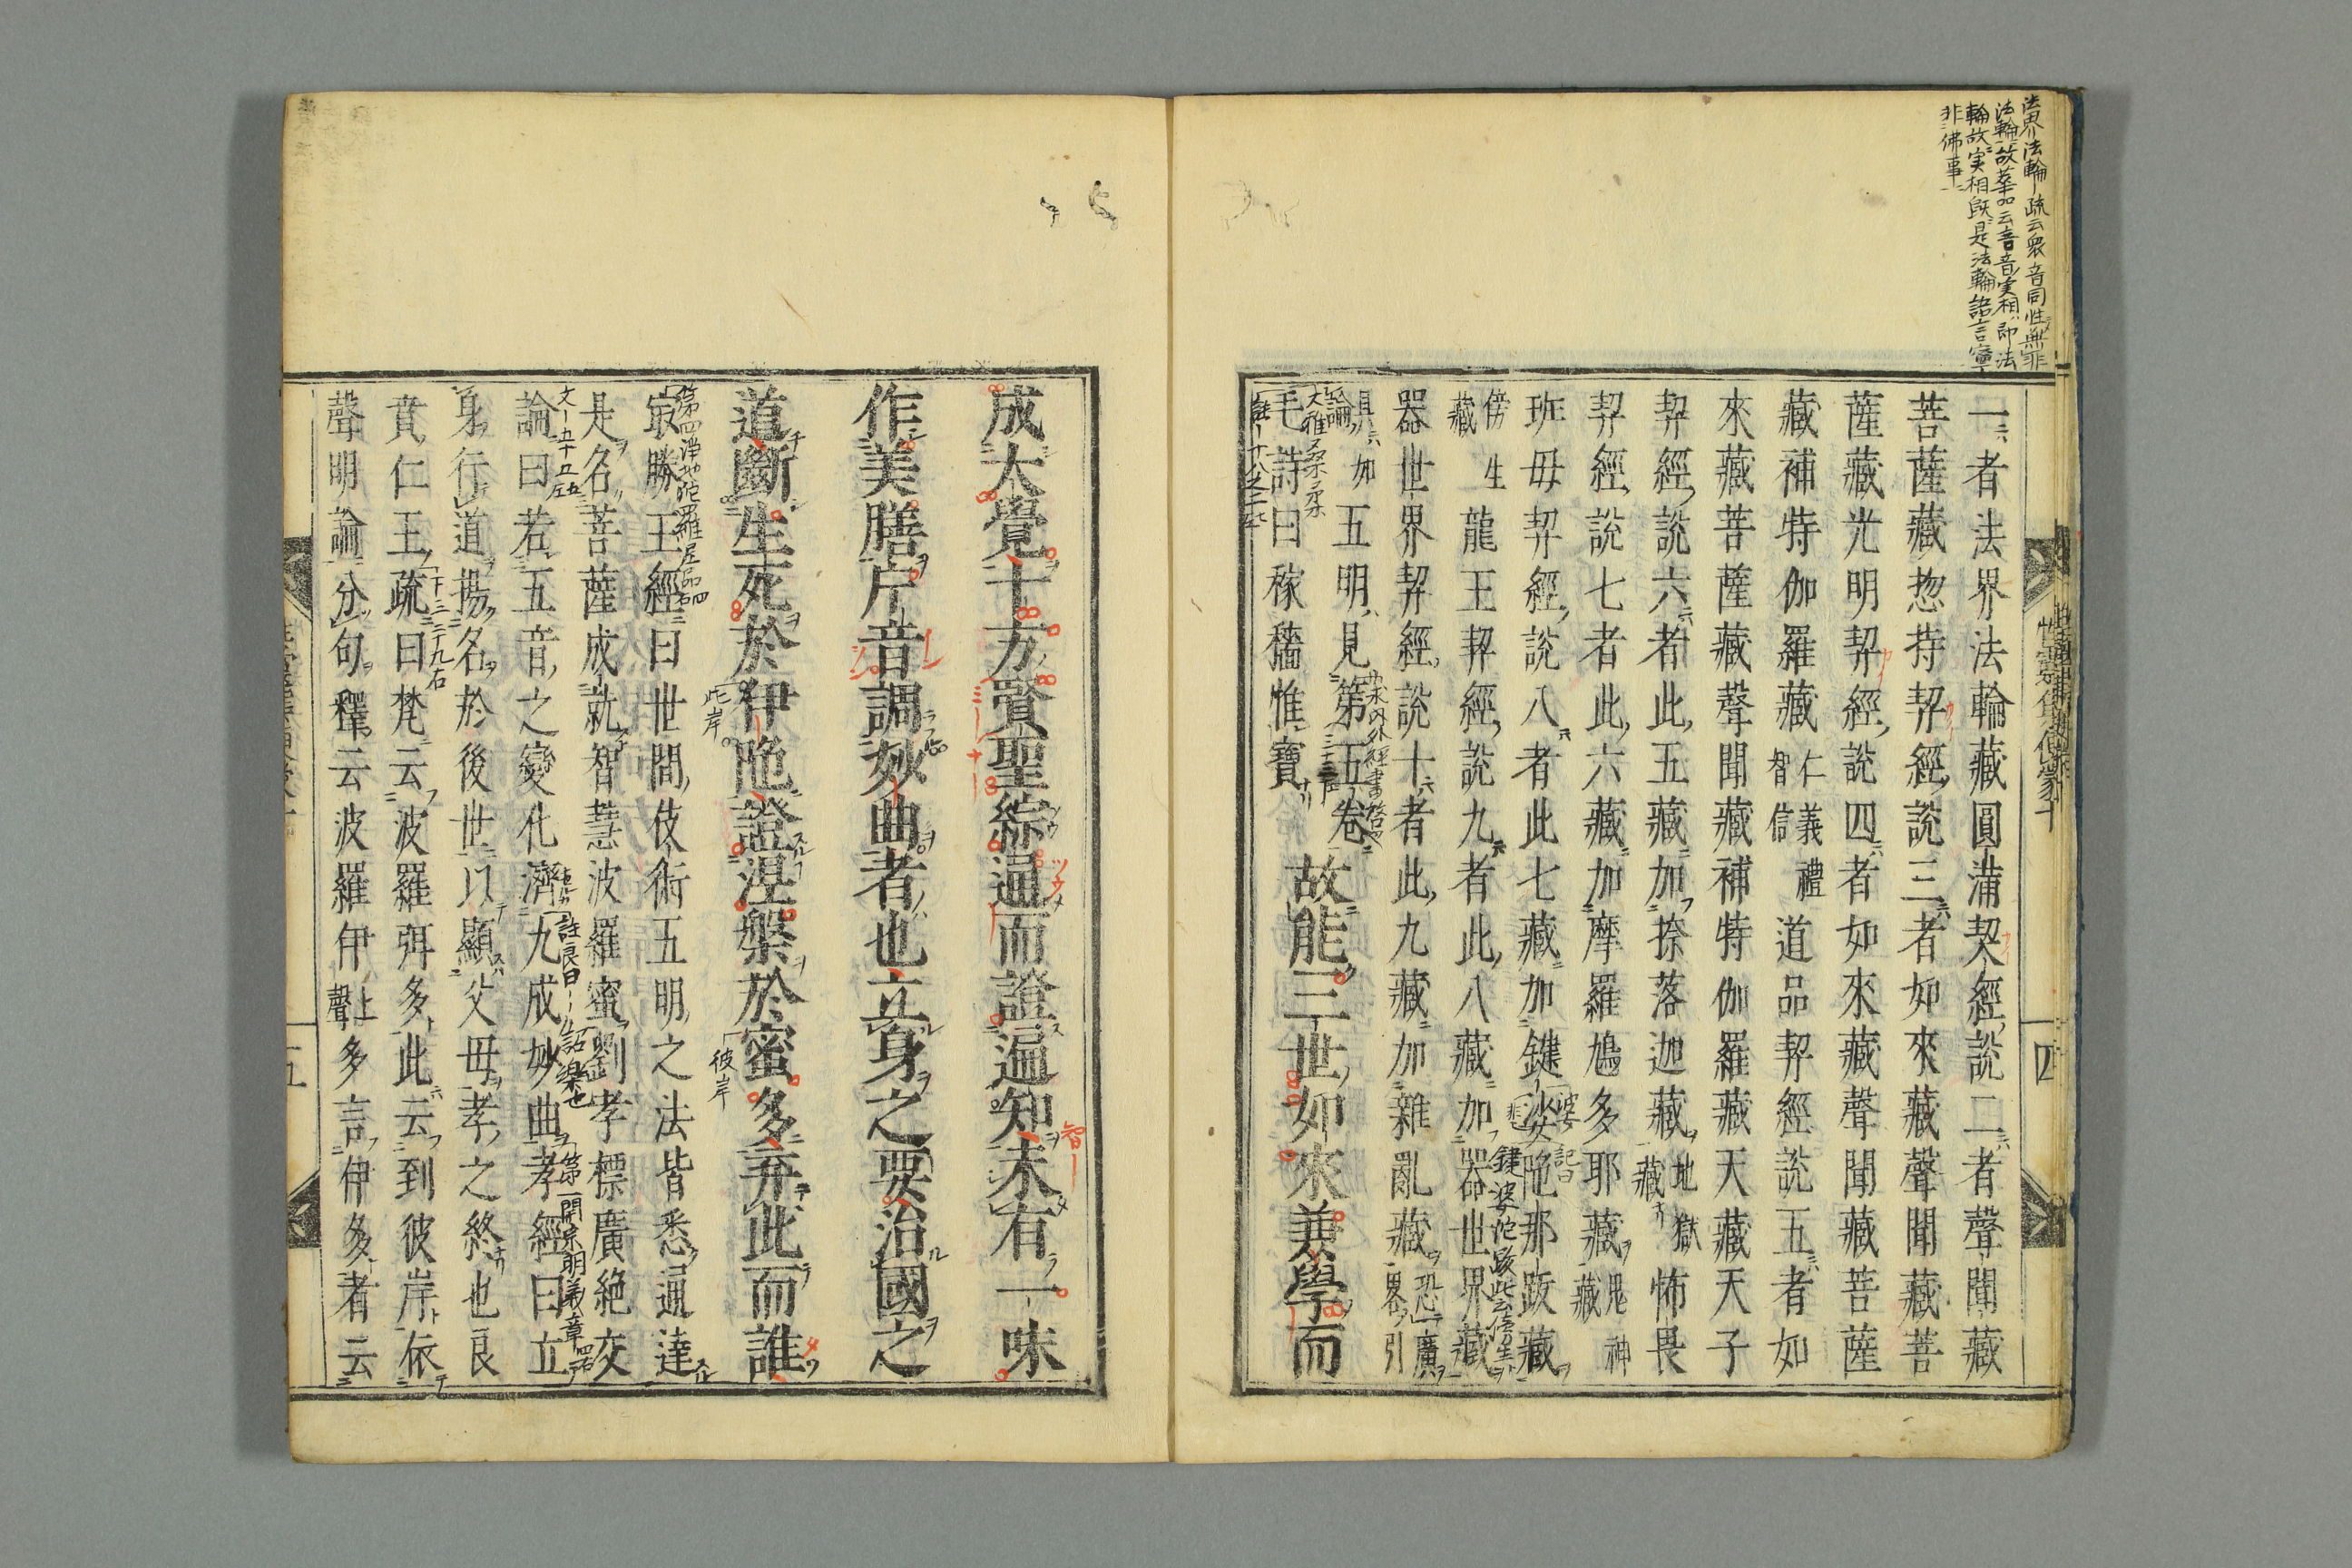 法界法輪疏云衆音同性無非
法輪故華品云音音実相即法
輪故実相既是法輪諸言寧
非佛事
一者法界法輪藏圓滿契經說二者聲聞藏
菩薩藏惣持契經說三者如來藏聲聞藏菩
薩藏光明契經說四者如來藏聲聞藏菩薩
藏補特伽羅藏仁義禮智信道品契經說五者如
來藏菩薩藏聲聞藏補特伽羅藏天藏天子
契經說六者此五藏加捺落迦藏地獄藏怖畏
契經說七者此六藏加摩羅鳩多耶藏鬼神藏
班毋契經說八者此七藏加鍵婆陁那跂藏
傍生藏龍王契經說九者此八藏加器世界藏
器世界契經說十者此九藏加雜亂藏恐廣畧引
具如五明見第五卷故能三世如來兼學而
毛詩曰稼穡惟寶
四
成大覺十方賢聖綜通而證遍知未有一味
作美膳片音調妙曲者也立身之要治國之
道斷生死於伊陁證涅槃於蜜多弃此而誰
此岸
彼岸
第四淨地陀羅尼品
最勝王經曰世間伎術五明之法皆悉通達
是名菩薩成就智慧波羅蜜劉孝標廣絶交
論曰若五音之變化濟九成妙曲孝經曰立
註良曰
第一開宗明義章
身行道揚名於後世以顯父毋孝之終也良
賁仁王疏曰梵云波羅弭多此云到彼岸依
聲明論分句釋云波羅伊上聲多言伊多者云